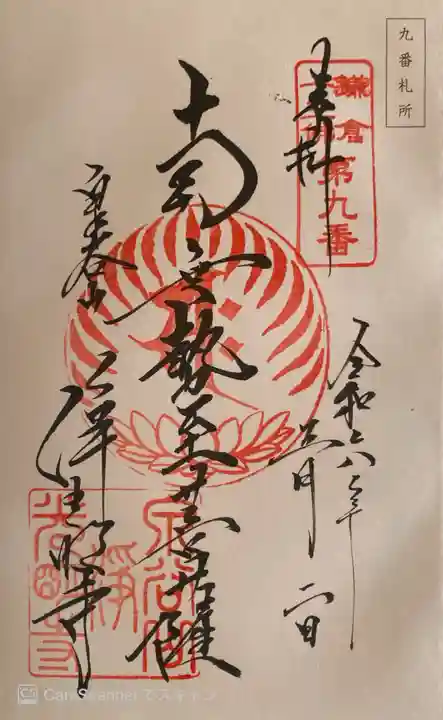 九番札所
奉拝
鎌倉
第九番
令和六年
三月
二日
南無勢至菩薩
泉谷山
浄光明寺
CS CamScanner でスキャン